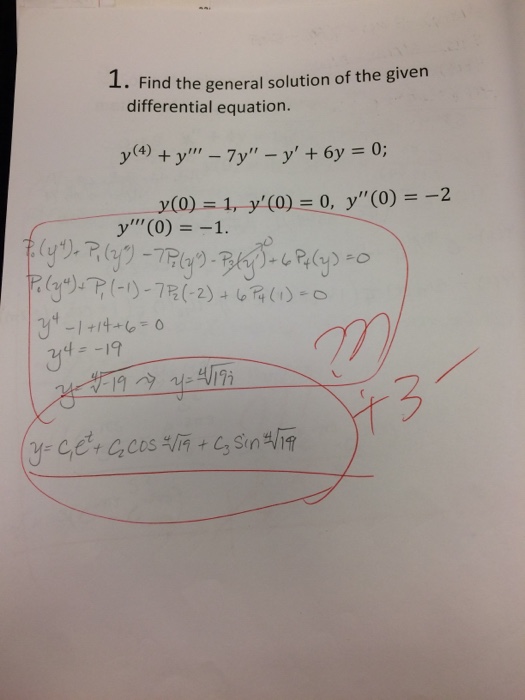 1. Find the general solution of the given
differential equation.
y⁽⁴⁾ + y''' − 7y'' − y' + 6y = 0;
y(0) = 1, y'(0) = 0, y''(0) = −2
y'''(0) = −1.
P₀(y⁴) + P₁(y''') − 7P₂(y'') − P₃(y')⁰ + 6P₄(y) = 0
P₀(y⁴) + P₁(−1) − 7P₂(−2) + 6P₄(1) = 0
y⁴ − 1 + 14 + 6 = 0
y⁴ = −19
y = ⁴√−19 → y = ⁴√19i
??
+3
y = C₁eᵗ + C₂ cos ⁴√19 + C₃ sin ⁴√19